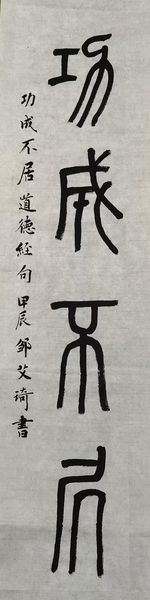 功成不居
功成不居道德经句甲辰邹艾琦書